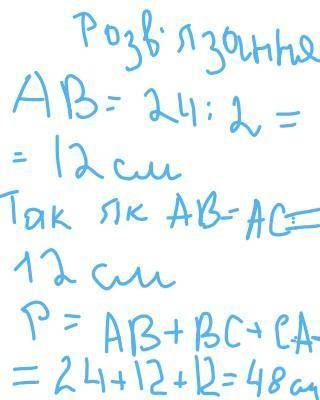 Розв'язання
AB = 24 : 2 =
= 12 см
Так як AB = AC =
12 см
P = AB + BC + CA
= 24 + 12 + 12 = 48 см